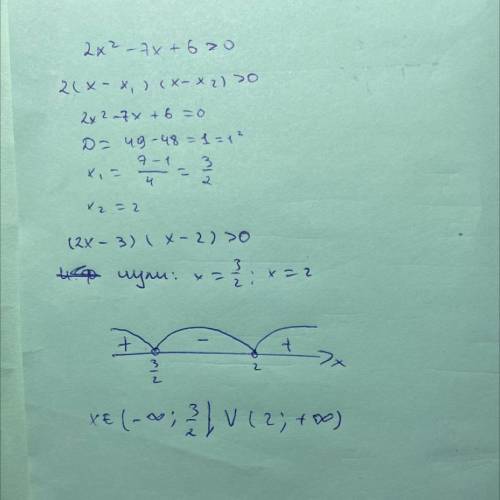 2x² - 7x + 6 > 0
2(x - x₁)(x - x₂) > 0
2x² - 7x + 6 = 0
D = 49 - 48 = 1 = 1²
x₁ = (7-1)/4 = 3/2
x₂ = 2
(2x - 3)(x - 2) > 0
нули: x = 3/2; x = 2
+ - +
3/2 2 x
x ∈ (-∞; 3/2) ∪ (2; +∞)